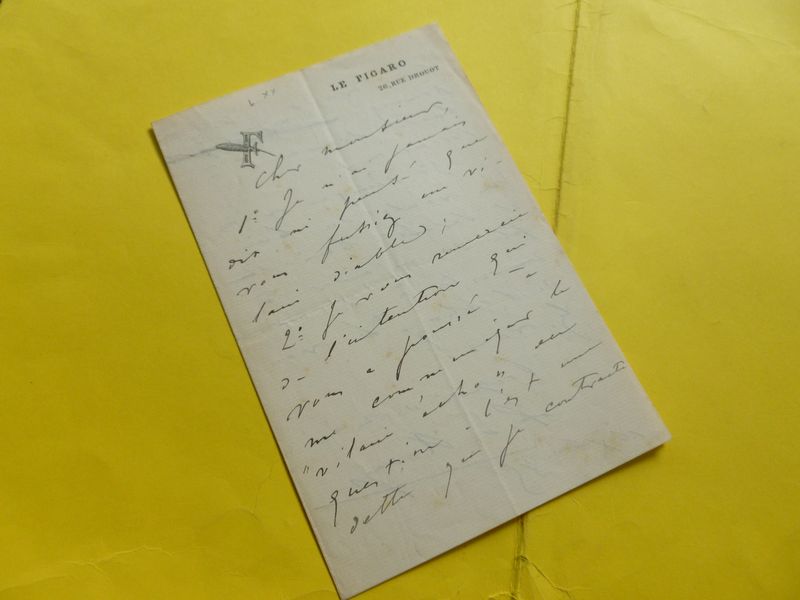 LE FIGARO
26, RUE DROUOT
L XV
F
Cher monsieur,
1º Je n'ai jamais
dit ni pensé que
vous fussiez un vi-
lain diable ;
2º Je vous remercie
de l'intention qui
vous a poussé à
me communiquer le
"vilain échos en
question - c'est une
dette que je contracte